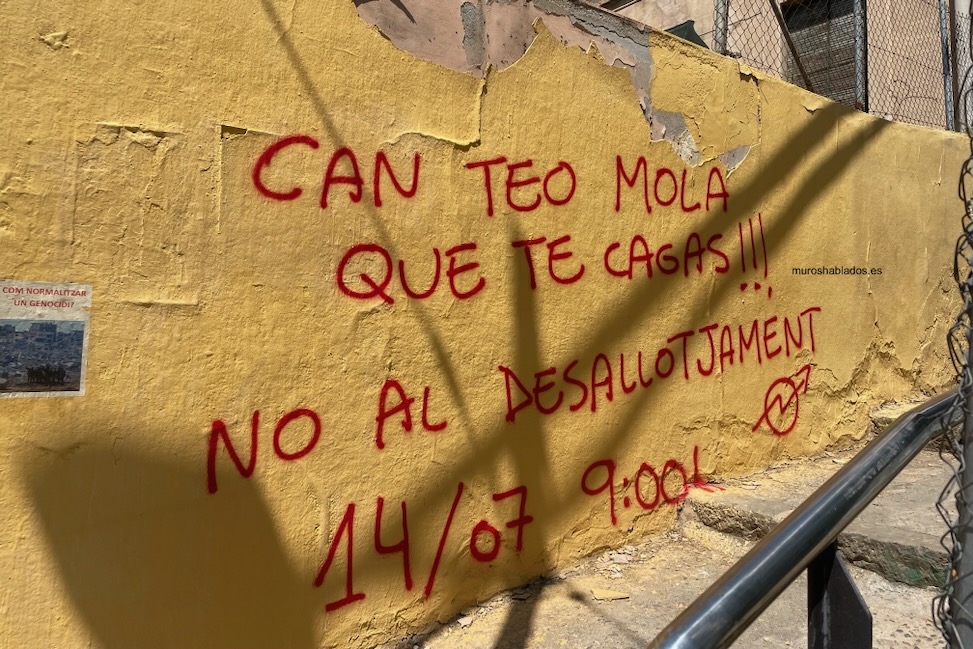 CAN TEO MOLA
QUE TE CAGAS!!!
muroshablados.es
COM NORMALITZAR
UN GENOCIDI?
NO AL DESALLOTJAMENT
14/07 9:00